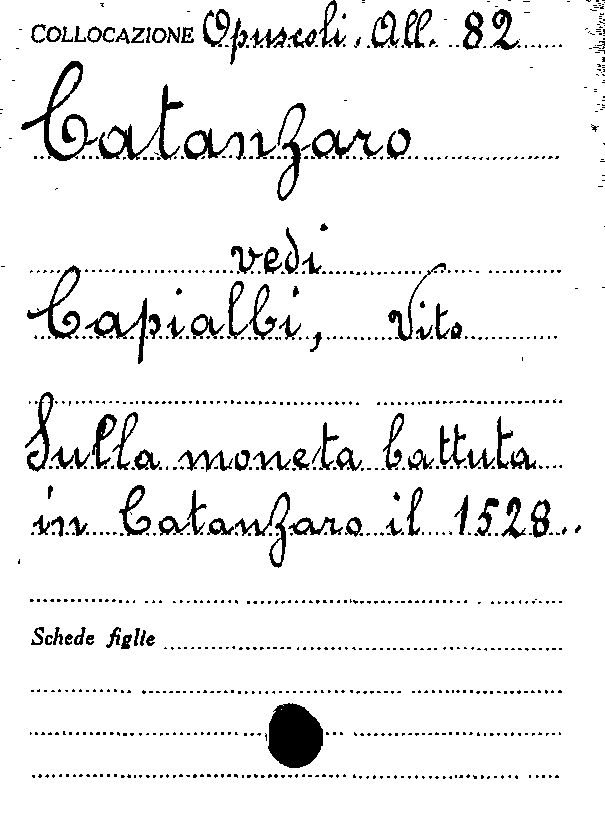 COLLOCAZIONE Opuscoli. All. 82
Catanzaro
vedi
Capialbi, Vito
Sulla moneta battuta
in Catanzaro il 1528..
Schede figlie